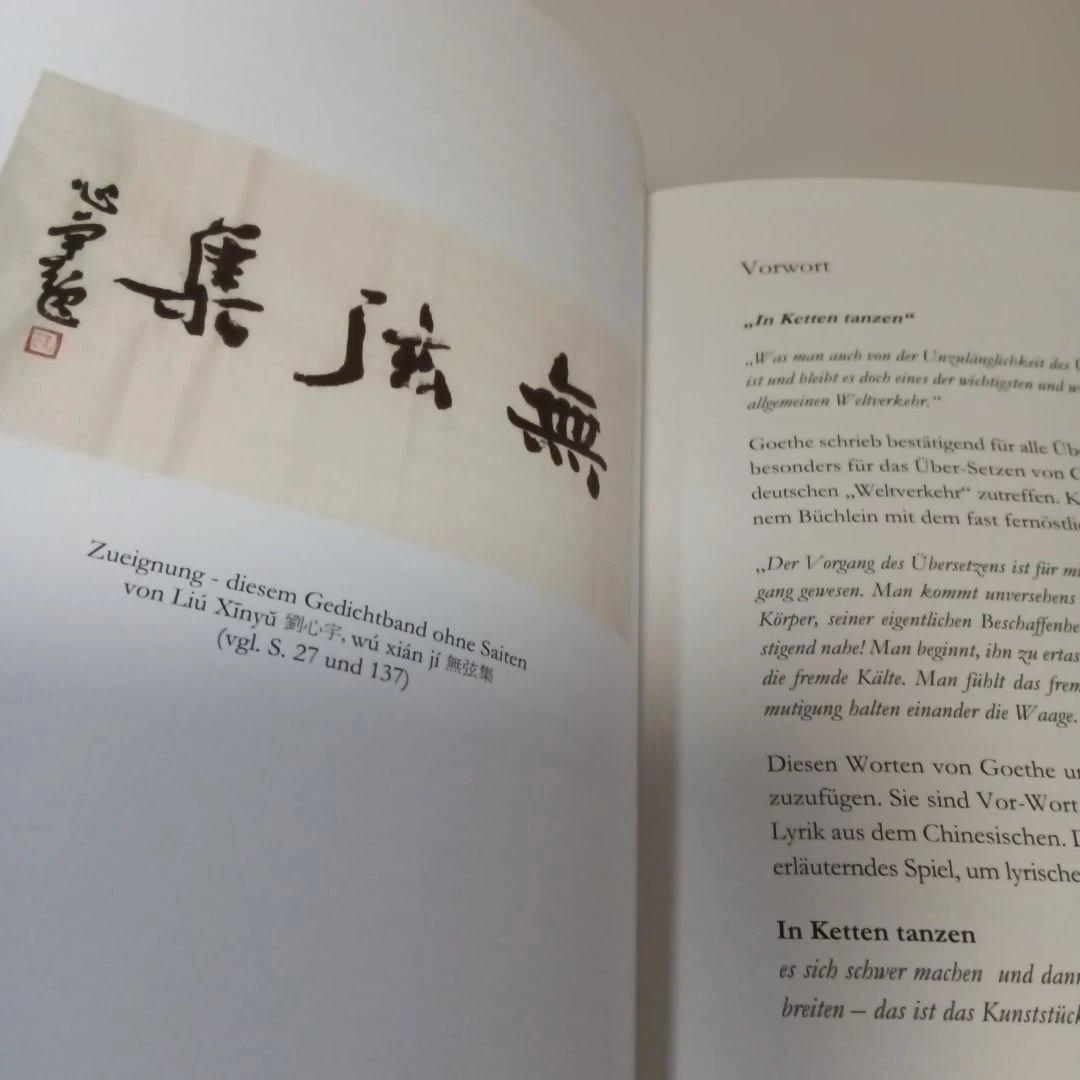 無弦集
心宇題
Zueignung - diesem Gedichtband ohne Saiten
von Liú Xīnyǔ 劉心宇, wú xián jí 無弦集
(vgl. S. 27 und 137)
Vorwort
„In Ketten tanzen“
„Was man auch von der Unzulänglichkeit des
ist und bleibt es doch eines der wichtigsten und
allgemeinen Weltverkehr.“
Goethe schrieb bestätigend für alle
besonders für das Über-Setzen von
deutschen „Weltverkehr“ zutreffen.
nem Büchlein mit dem fast
„Der Vorgang des Übersetzens ist für
gang gewesen. Man kommt unversehens
Körper, seiner eigentlichen
stigend nahe! Man beginnt, ihn zu
die fremde Kälte. Man fühlt das
mutigung halten einander die Waage.
Diesen Worten von Goethe
zuzufügen. Sie sind Vor-Wort
Lyrik aus dem Chinesischen.
erläuterndes Spiel, um
In Ketten tanzen
es sich schwer machen und
breiten – das ist das